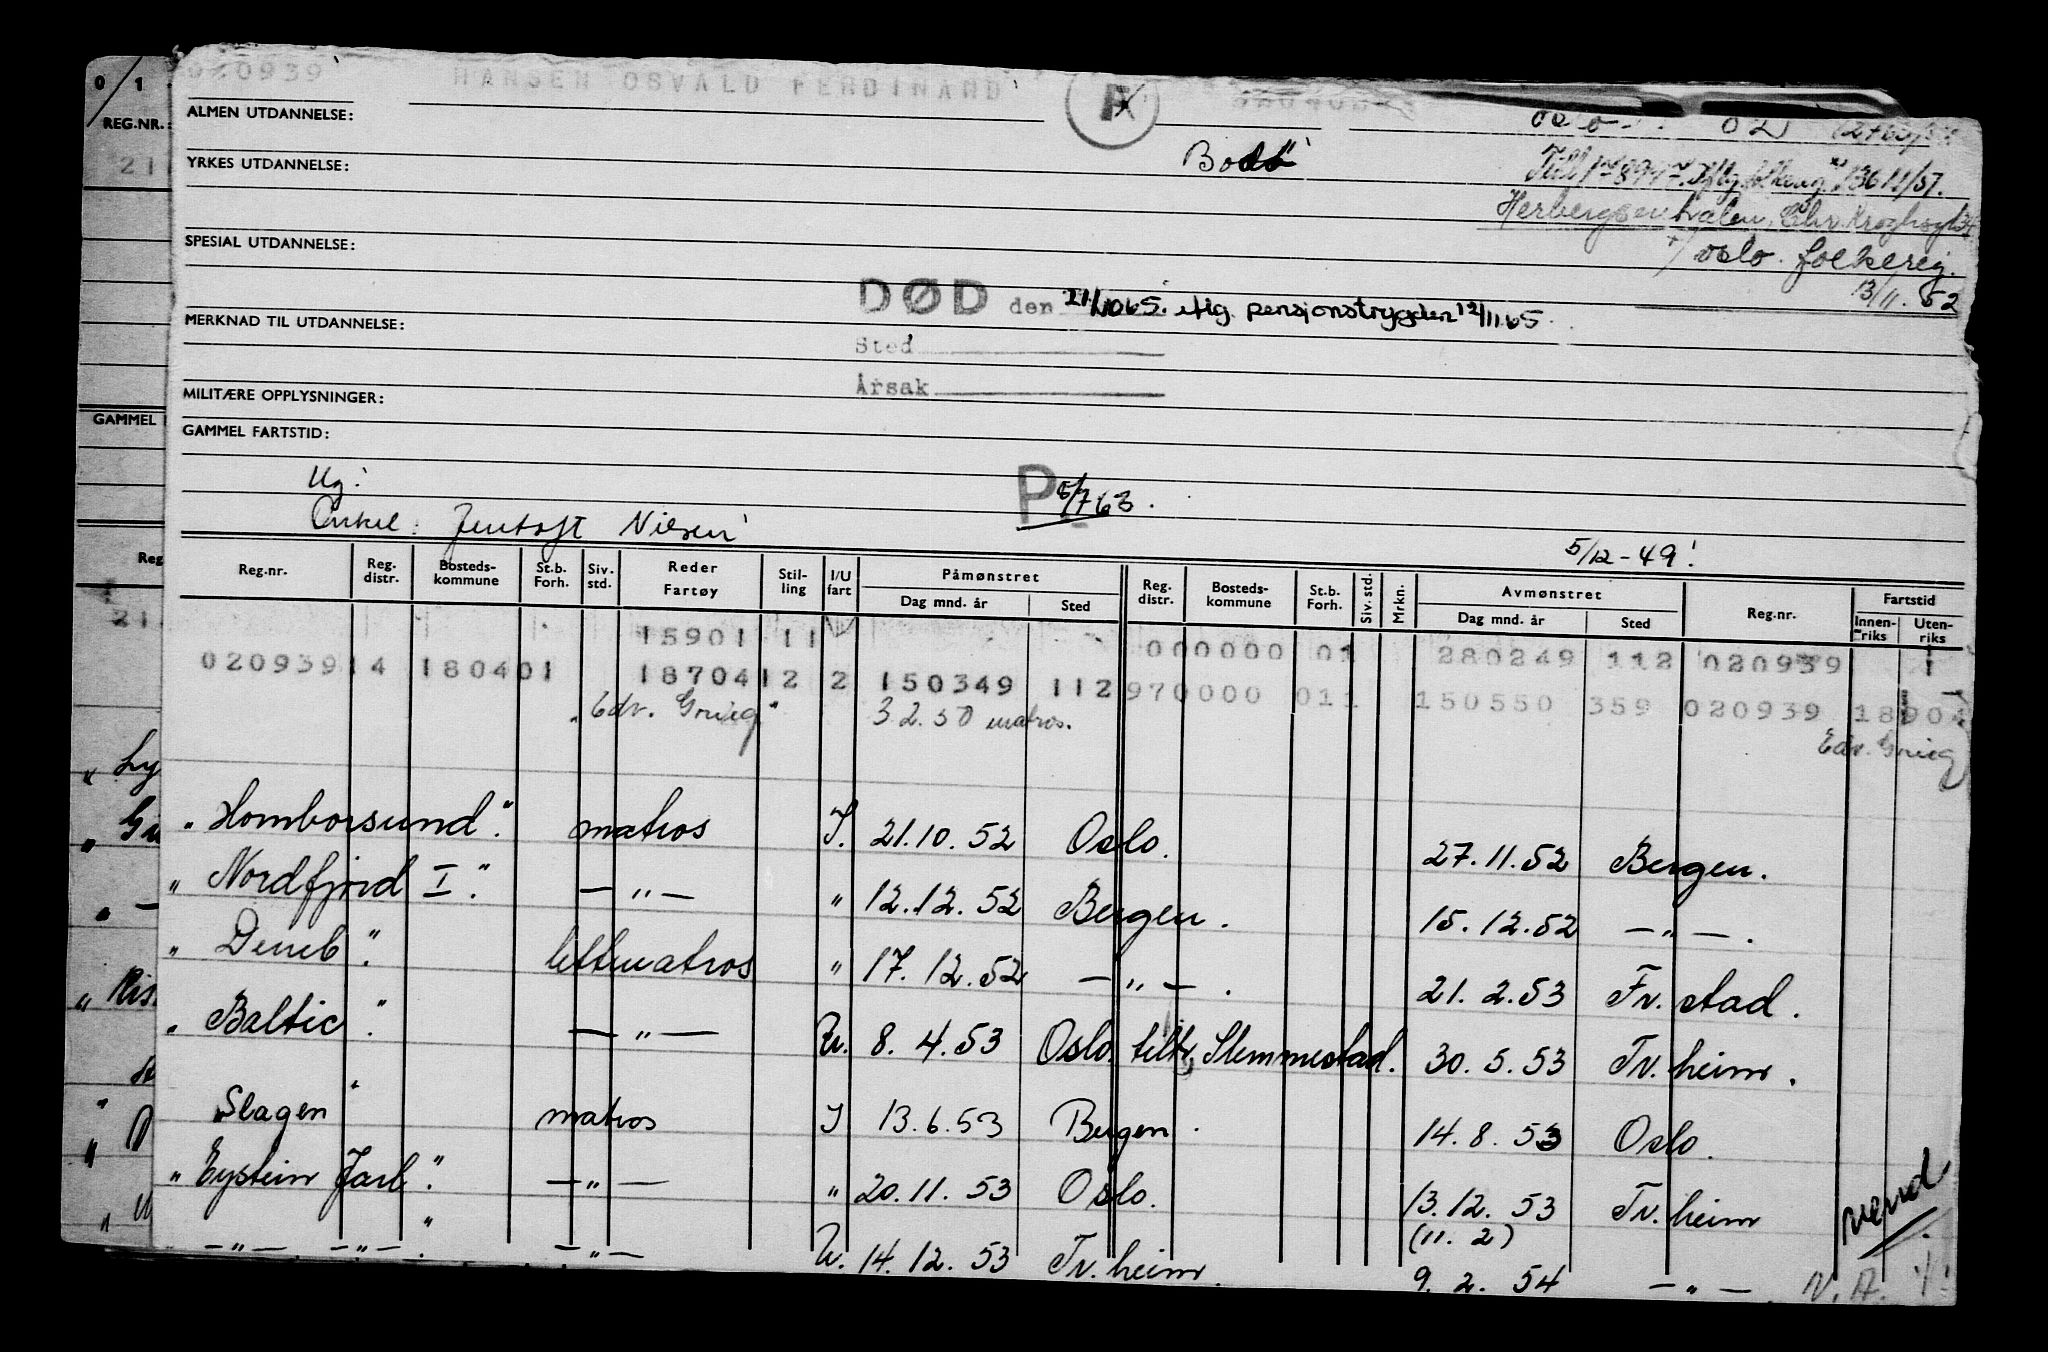 020939 HANSEN OSVALD FERDINAND
0 1
REG.NR.:
21
ALMEN UTDANNELSE:
Oslo 02
YRKES UTDANNELSE:
Bodö
Herbergsentralen, Chr. Kroghsgt 34
SPESIAL UTDANNELSE:
Oslo folkereg.
13/11. 52
DØD den 21/10 65. iflg pensjonstrygden 12/11 65.
MERKNAD TIL UTDANNELSE:
Sted
Årsak
MILITÆRE OPPLYSNINGER:
GAMMEL
GAMMEL FARTSTID:
Ug:
P 5/7 63.
Onkel: Jentoft Nilsen
5/12-49!
Reg
Reg.nr. Reg. distr. Bosteds-kommune St.b. Forh. Siv. std. Reder Fartøy Stil-ling I/U fart Påmønstret Dag mnd. år Sted Reg. distr. Bosteds-kommune St.b. Forh. Siv. std. Mrkn. Avmønstret Dag mnd. år Sted Reg.nr. Fartstid Innen-riks Uten-riks
21
15901 11 000000 01 280249 112 020939
020939 14 180401 187041 2 2 150349 112 970000 011 150550 359 020939 18904
"Edv. Grieg" 3 2. 50 matros. Edv. Grieg
" Ly
"Homborsund". matros I. 21.10. 52 Oslo. 27. 11. 52 Bergen.
"Nordfjord I". — " — " 12. 12. 52 Bergen. 15. 12. 52 — " —.
"Deneb". lettmatros " 17. 12. 52 — " —. 21. 2. 53 Fr. stad.
"Baltic". — " — U. 8. 4. 53 Oslo. tiltr. Slemmestad. 30. 5. 53 Tr. heim.
"Slagen" matros I 13. 6. 53 Bergen. 14. 8. 53 Oslo.
"Eystein Jarl". — " — " 20. 11. 53 Oslo. 13. 12. 53 Tr. heim
(11. 2)
— " —. — " —. — " — U. 14. 12. 53 Tr. heim. 9. 2. 54 — " —. N. A.
vend